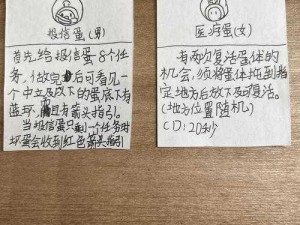 报信蛋(男)
首先给报信蛋8个任
务,做完后可看见一
个中立及以下的蛋底下有
蓝环,且有箭头指引。
当报信蛋只剩一个任务时
坏蛋会收到红色箭头指引
医疗蛋(女)
有两次复活蛋体的
机会,须将蛋体拖到指
定地方后放下及可复活。
(地方位置随机)
CD:20秒